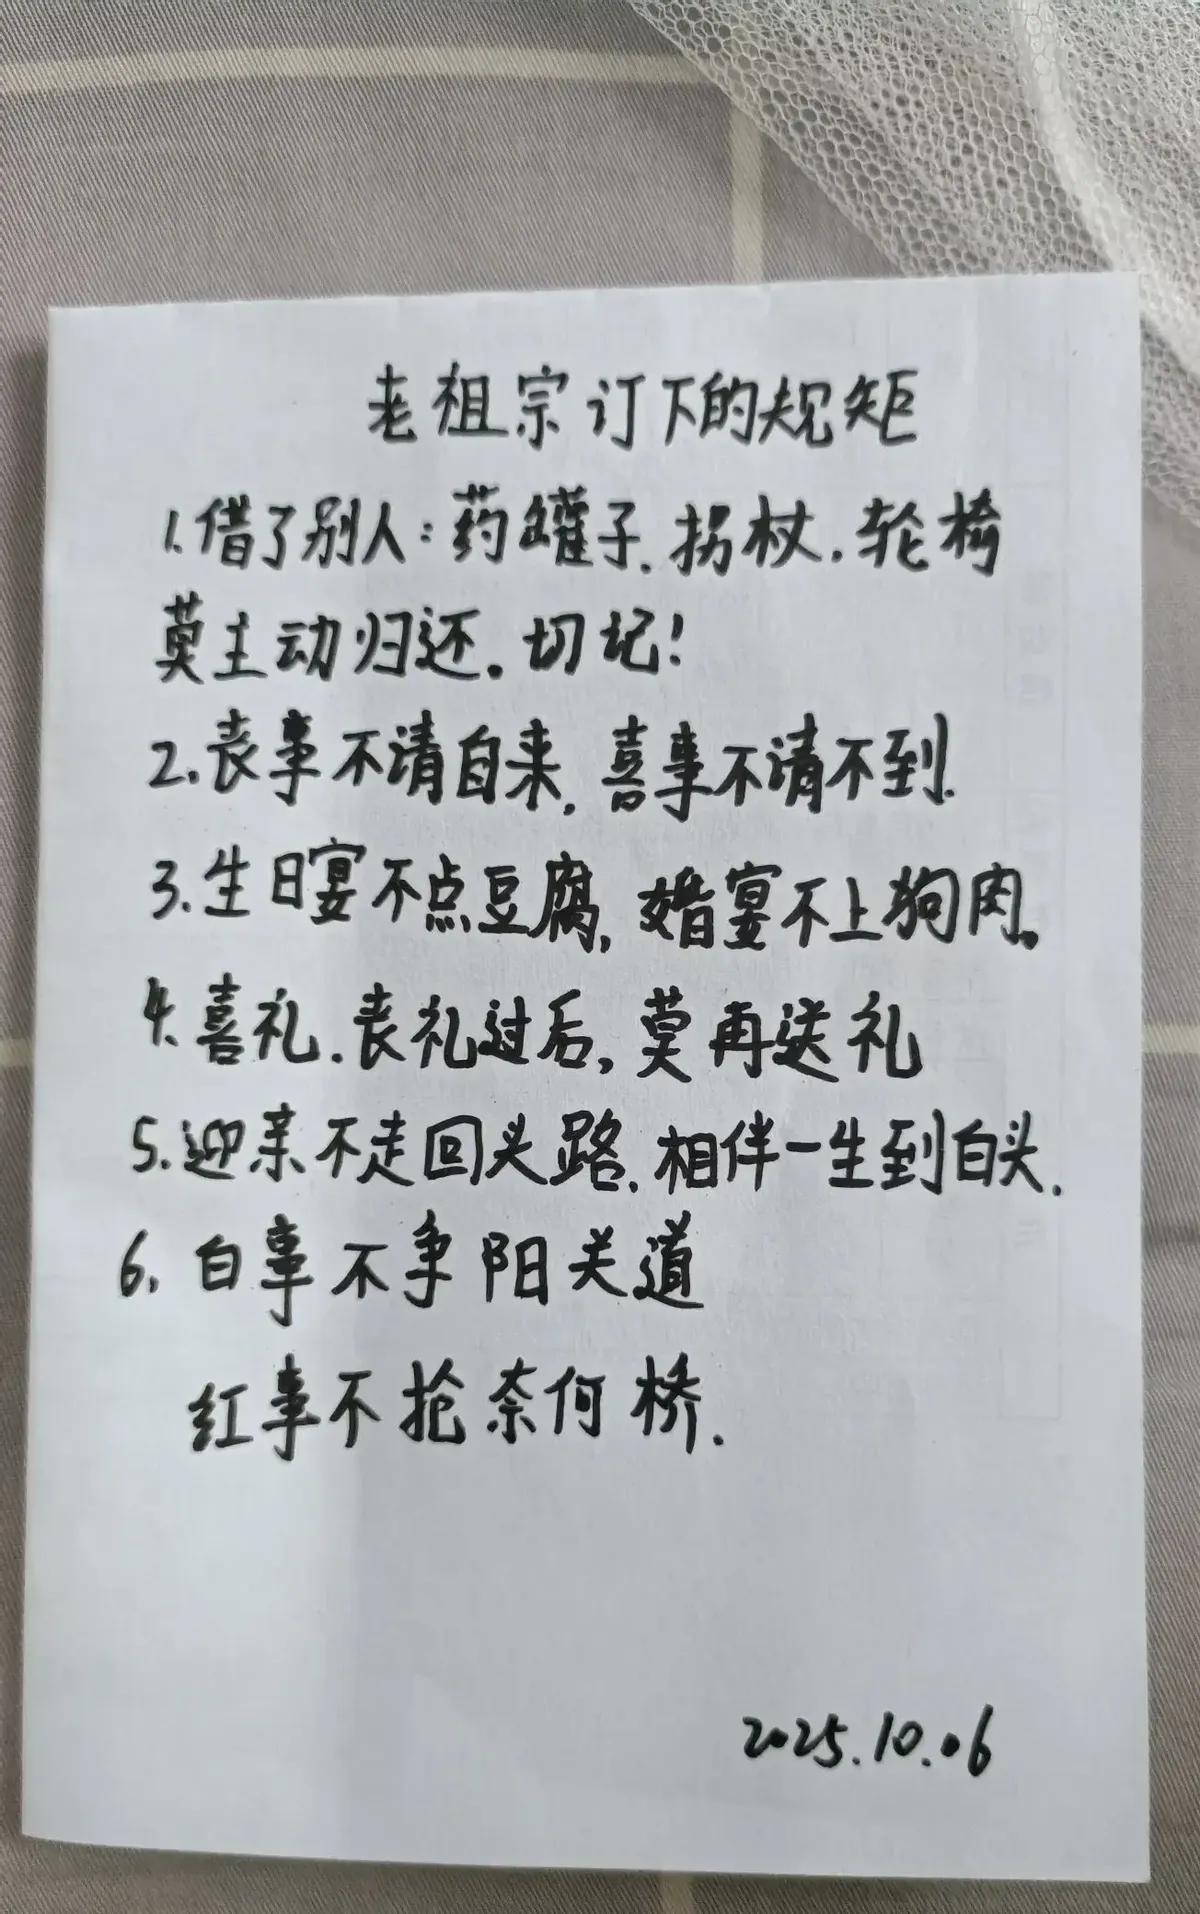 老祖宗订下的规矩
1.借了别人:药罐子.拐杖.轮椅
莫主动归还.切记!
2.丧事不请自来,喜事不请不到.
3.生日宴不点豆腐,婚宴不上狗肉。
4.喜礼.丧礼过后,莫再送礼
5.迎亲不走回头路.相伴一生到白头.
6.白事不争阳关道
红事不抢奈何桥.
2025.10.06